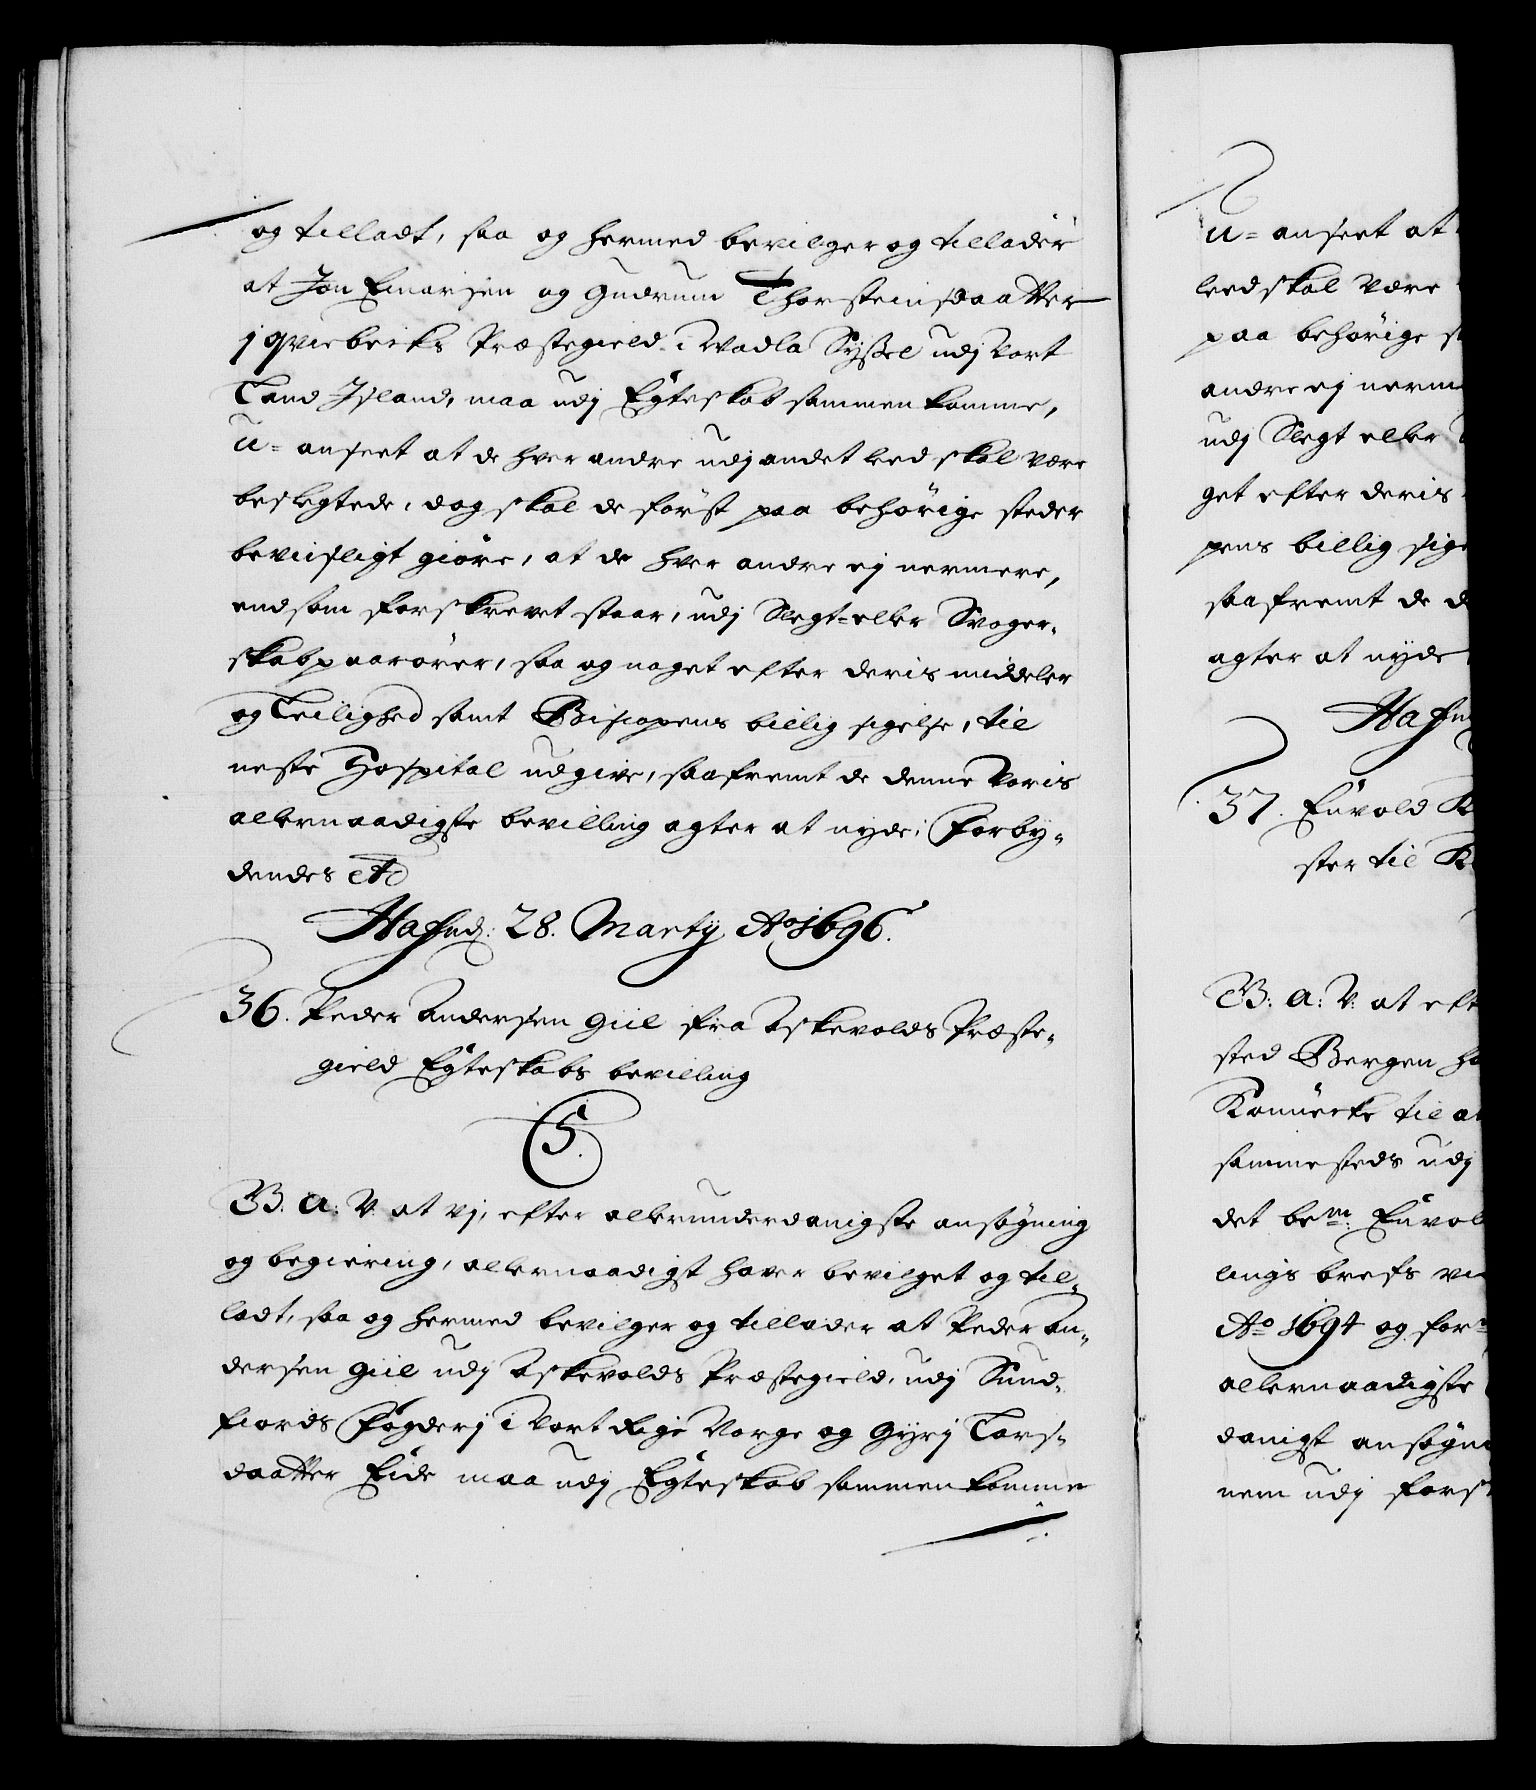 og tilladt, saa og hermed bevilger og tillader
at Jon Einarsen og Gudrum Thorsteinsdaatter
j Qviebecks Præstegield i Wadla Syssel udj Vort
Land Jsland, maa udj Egteskab sammen komme,
u-anseet at de hver andre udj andet leed skal være
beslegtede, dog skal de först paa behörige steder
beviisligt giöre, at de hver andre ej nermere,
end som forskrevet staar, udj Slegt- eller Svoger-
skab paarörer, saa og noget efter deris middeler
og Leilighed samt Biscopens billig sigelse, til
neste Hospital udgive, saafremt de denne Voris
allernaadigste bevilling agter at nyde; Forby-
dendes etc
Hafnd: 28. Martij Ao 1696.
36. Peder Andersen Giil fra Askevolds Præste-
gield Egteskabs bevilling
5.
G. A: V. at vj, efter allerunderdanigste ansögning
og begiering, allernaadigst haver bevilget og til-
ladt, saa og hermed bevilger og tillader at Peder An-
dersen Giil udj Askevolds Præstegield, udj Sund-
fiords Fogderj i Vort Rige Norge og Gyrj Lars-
daatter Eide maa udj Egteskab sammen komme
u-anseet at
leed skal være
paa behörige s
andre ej nerm
udj Slegt eller
get efter deris
pens billig sige
saafremt de d
agter at nyde
Hafn
37. Envold K
ster til K
G: A: V: at eft
sted Bergen ha
til at
sammesteds udj
det bem: Envol
lings brefs vi
Ao 1694 og for
allernaadigste
danigst ansögn
nem udj fors